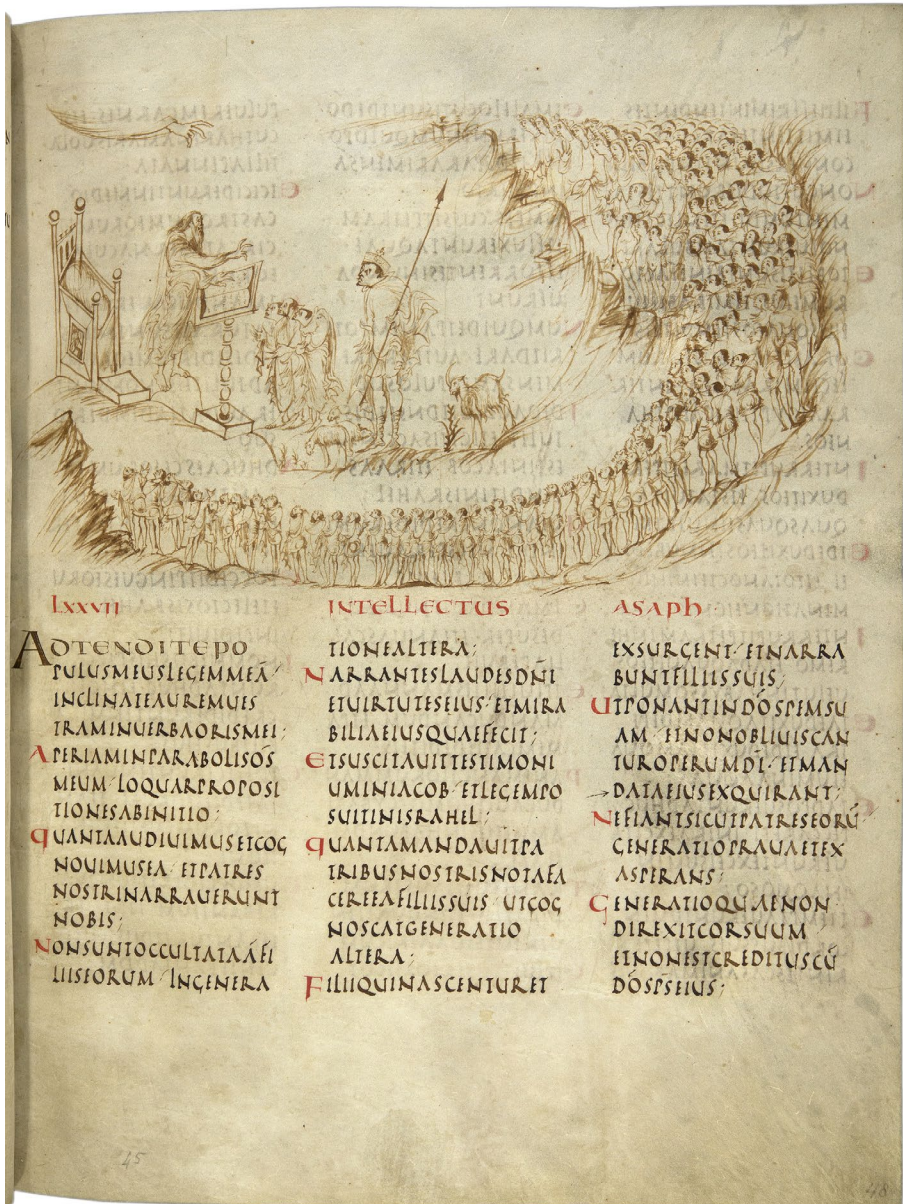 LXXVII INTELLECTUS ASAPH
ADTENDITEPO
PULUSMEUSLEGEMMEĀ
INCLINATEAUREMUES
TRAMINUERBAORISMEI;
APERIAMINPARABOLISOS
MEUM LOQUARPROPOSI
TIONESABINITIO;
QUANTAAUDIUIMUSETCOG
NOUIMUSEA ETPATRES
NOSTRINARRAUERUNT
NOBIS;
NONSUNTOCCULTATAAFI
LIISEORUM INGENERA
TIONEALTERA;
NARRANTESLAUDESDN̄I
ETUIRTUTESEIUS ETMIRA
BILIAEIUSQUAEFECIT;
ETSUSCITAUITTESTIMONI
UMINIACOB ETLEGEMPO
SUITINISRAHEL;
QUANTAMANDAUITPA
TRIBUSNOSTRISNOTAFA
CEREEAFILIISSUIS UTCOG
NOSCATGENERATIO
ALTERA;
FILIIQUINASCENTURET
EXSURGENT ETNARRA
BUNTFILIISSUIS;
UTPONANTINDŌSPEMSU
AM ETNONOBLIUISCAN
TUROPERUMDĪ ETMAN
DATAEIUSEXQUIRANT;
NEFIANTSICUTPATRESEORŪ
GENERATIOPRAUAETEX
ASPERANS;
GENERATIOQUAENON
DIREXITCORSUUM
ETNONESTCREDITUSCŪ
DŌSPSEIUS;
45